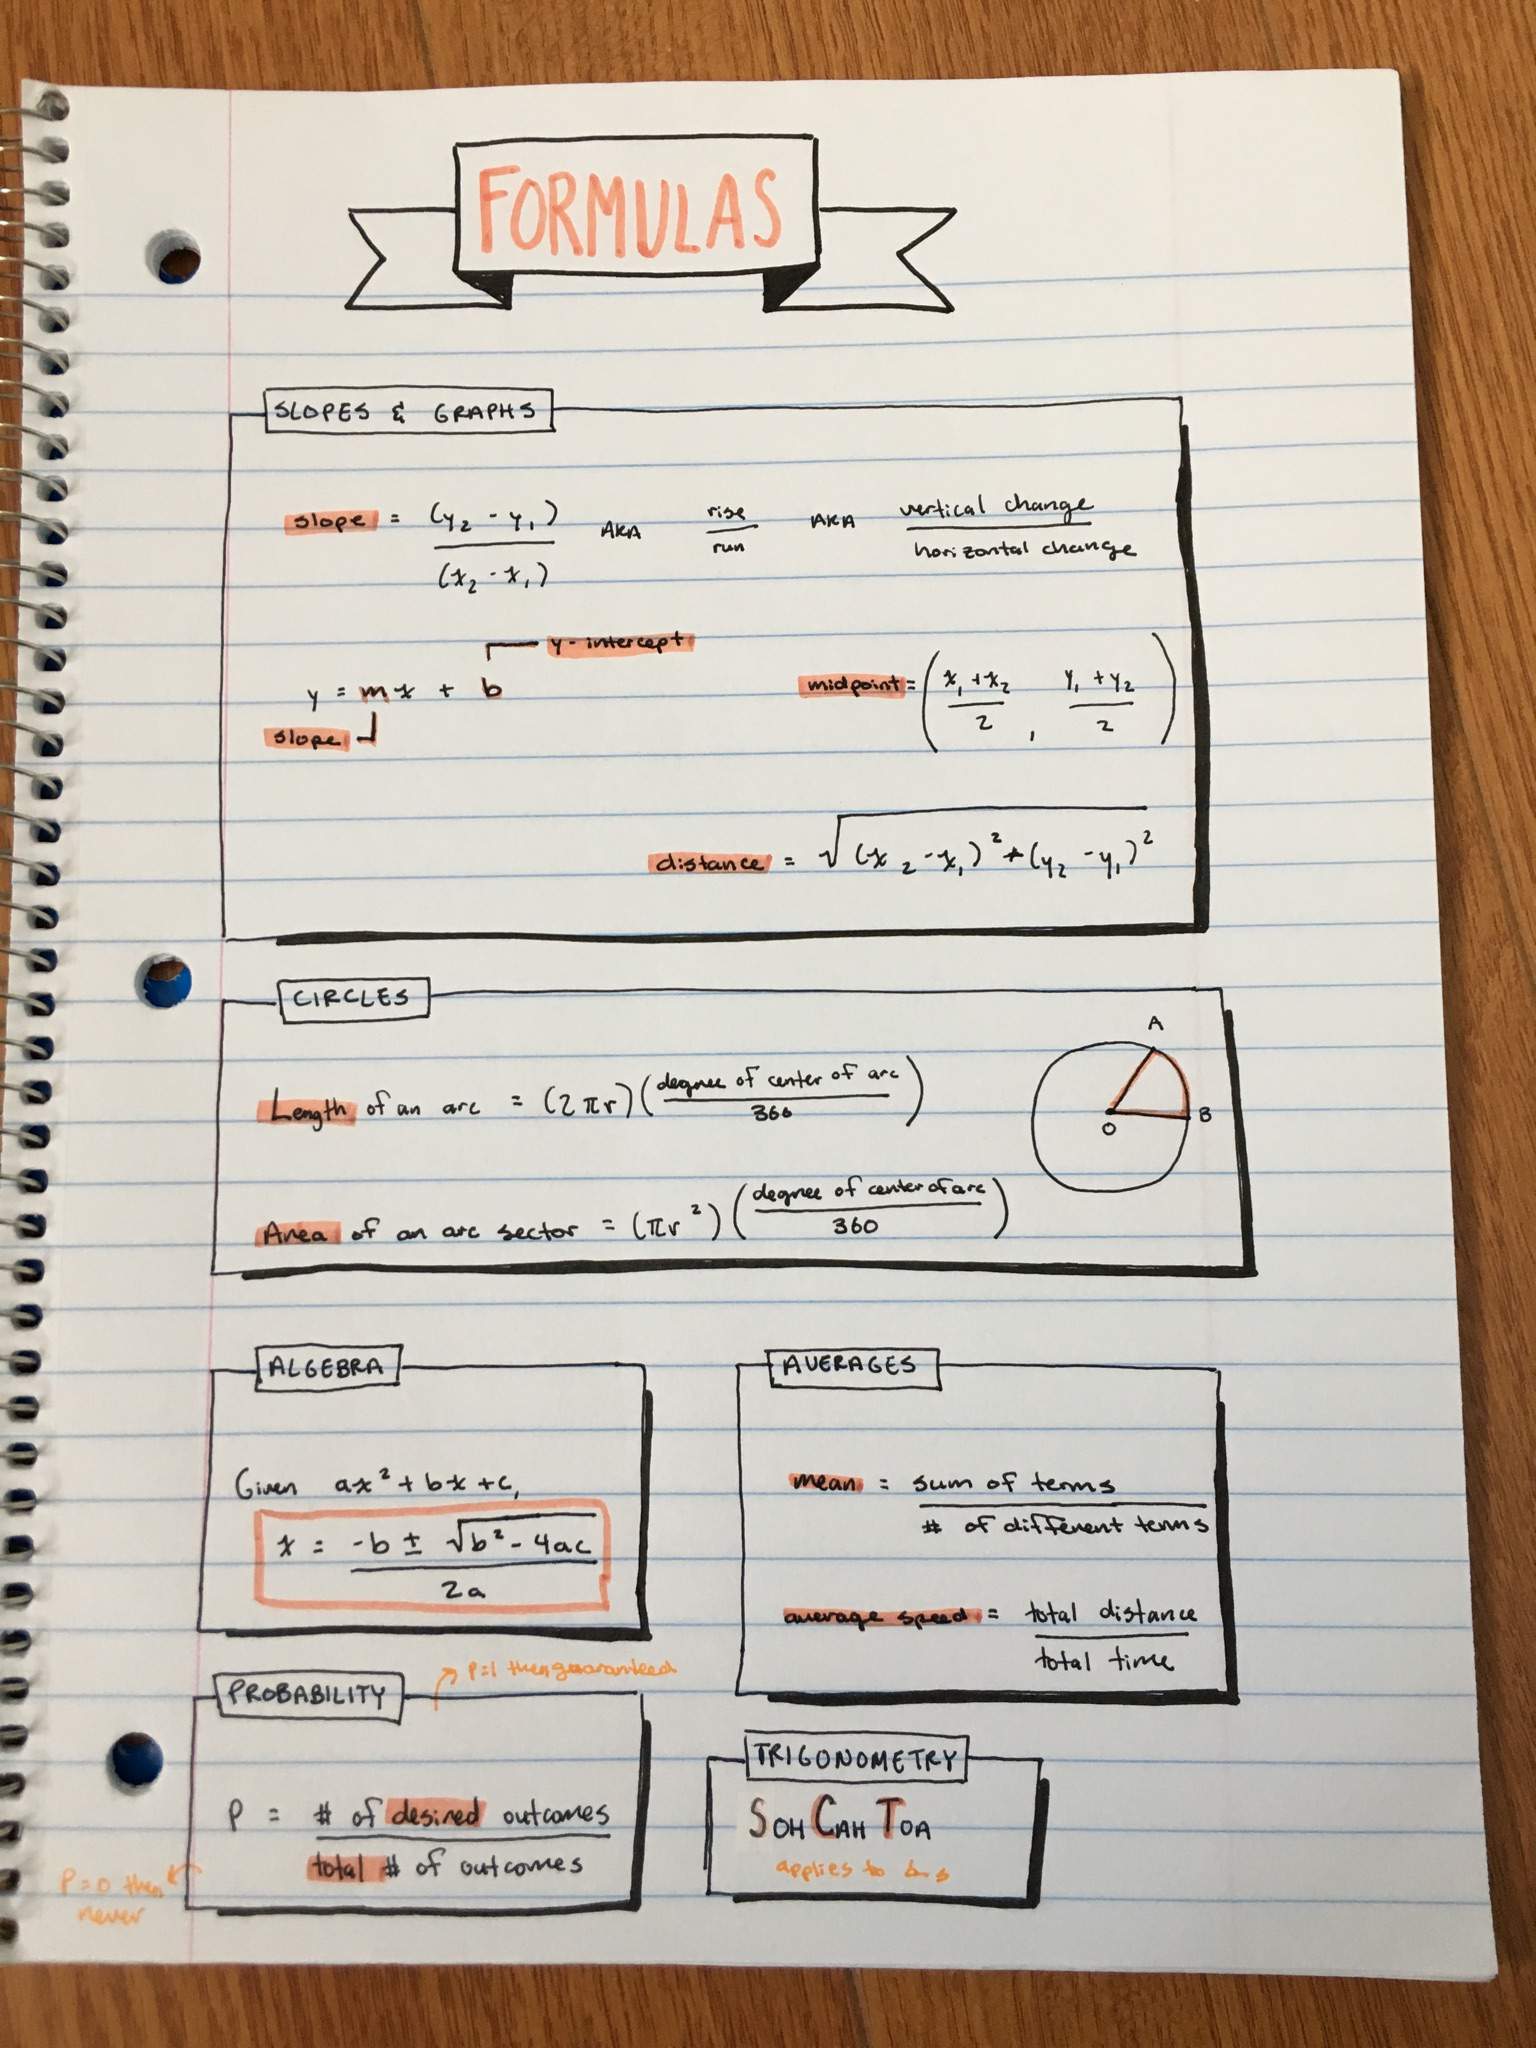 FORMULAS
SLOPES & GRAPHS
slope = (y₂ - y₁) / (x₂ - x₁) AKA rise / run AKA vertical change / horizontal change
y-intercept
y = mx + b
slope
midpoint = ( x₁ + x₂ / 2 , y₁ + y₂ / 2 )
distance = √(x₂ - x₁)² + (y₂ - y₁)²
CIRCLES
A
Length of an arc = (2πr) ( degree of center of arc / 360 )
O B
Area of an arc sector = (πr²) ( degree of center of arc / 360 )
ALGEBRA
Given ax² + bx + c,
x = -b ± √b² - 4ac / 2a
AVERAGES
mean = sum of terms / # of different terms
average speed = total distance / total time
P=1 then guaranteed
PROBABILITY
P = # of desired outcomes / total # of outcomes
P=0 then
never
TRIGONOMETRY
SOH CAH TOA
applies to ⊿s